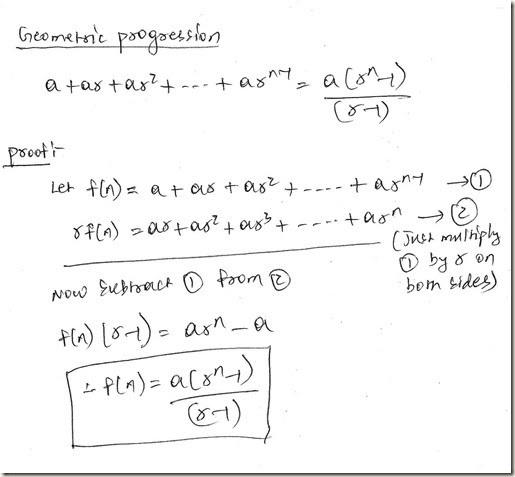 Geometric progression
a + ar + ar² + ---- + arⁿ⁻¹ = a(rⁿ-1)/(r-1)
proof:-
Let f(n) = a + ar + ar² + ----- + arⁿ⁻¹ → ①
rf(n) = ar + ar² + ar³ + ----- + arⁿ → ②
(Just multiply
① by r on
both sides)
Now subtract ① from ②
f(n)(r-1) = arⁿ - a
∴ f(n) = a(rⁿ-1)/(r-1)